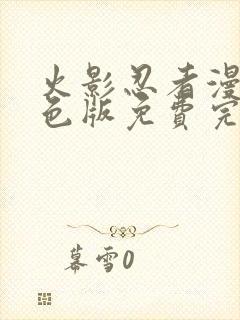 火影忍者漫
色版免费完
幕雪0